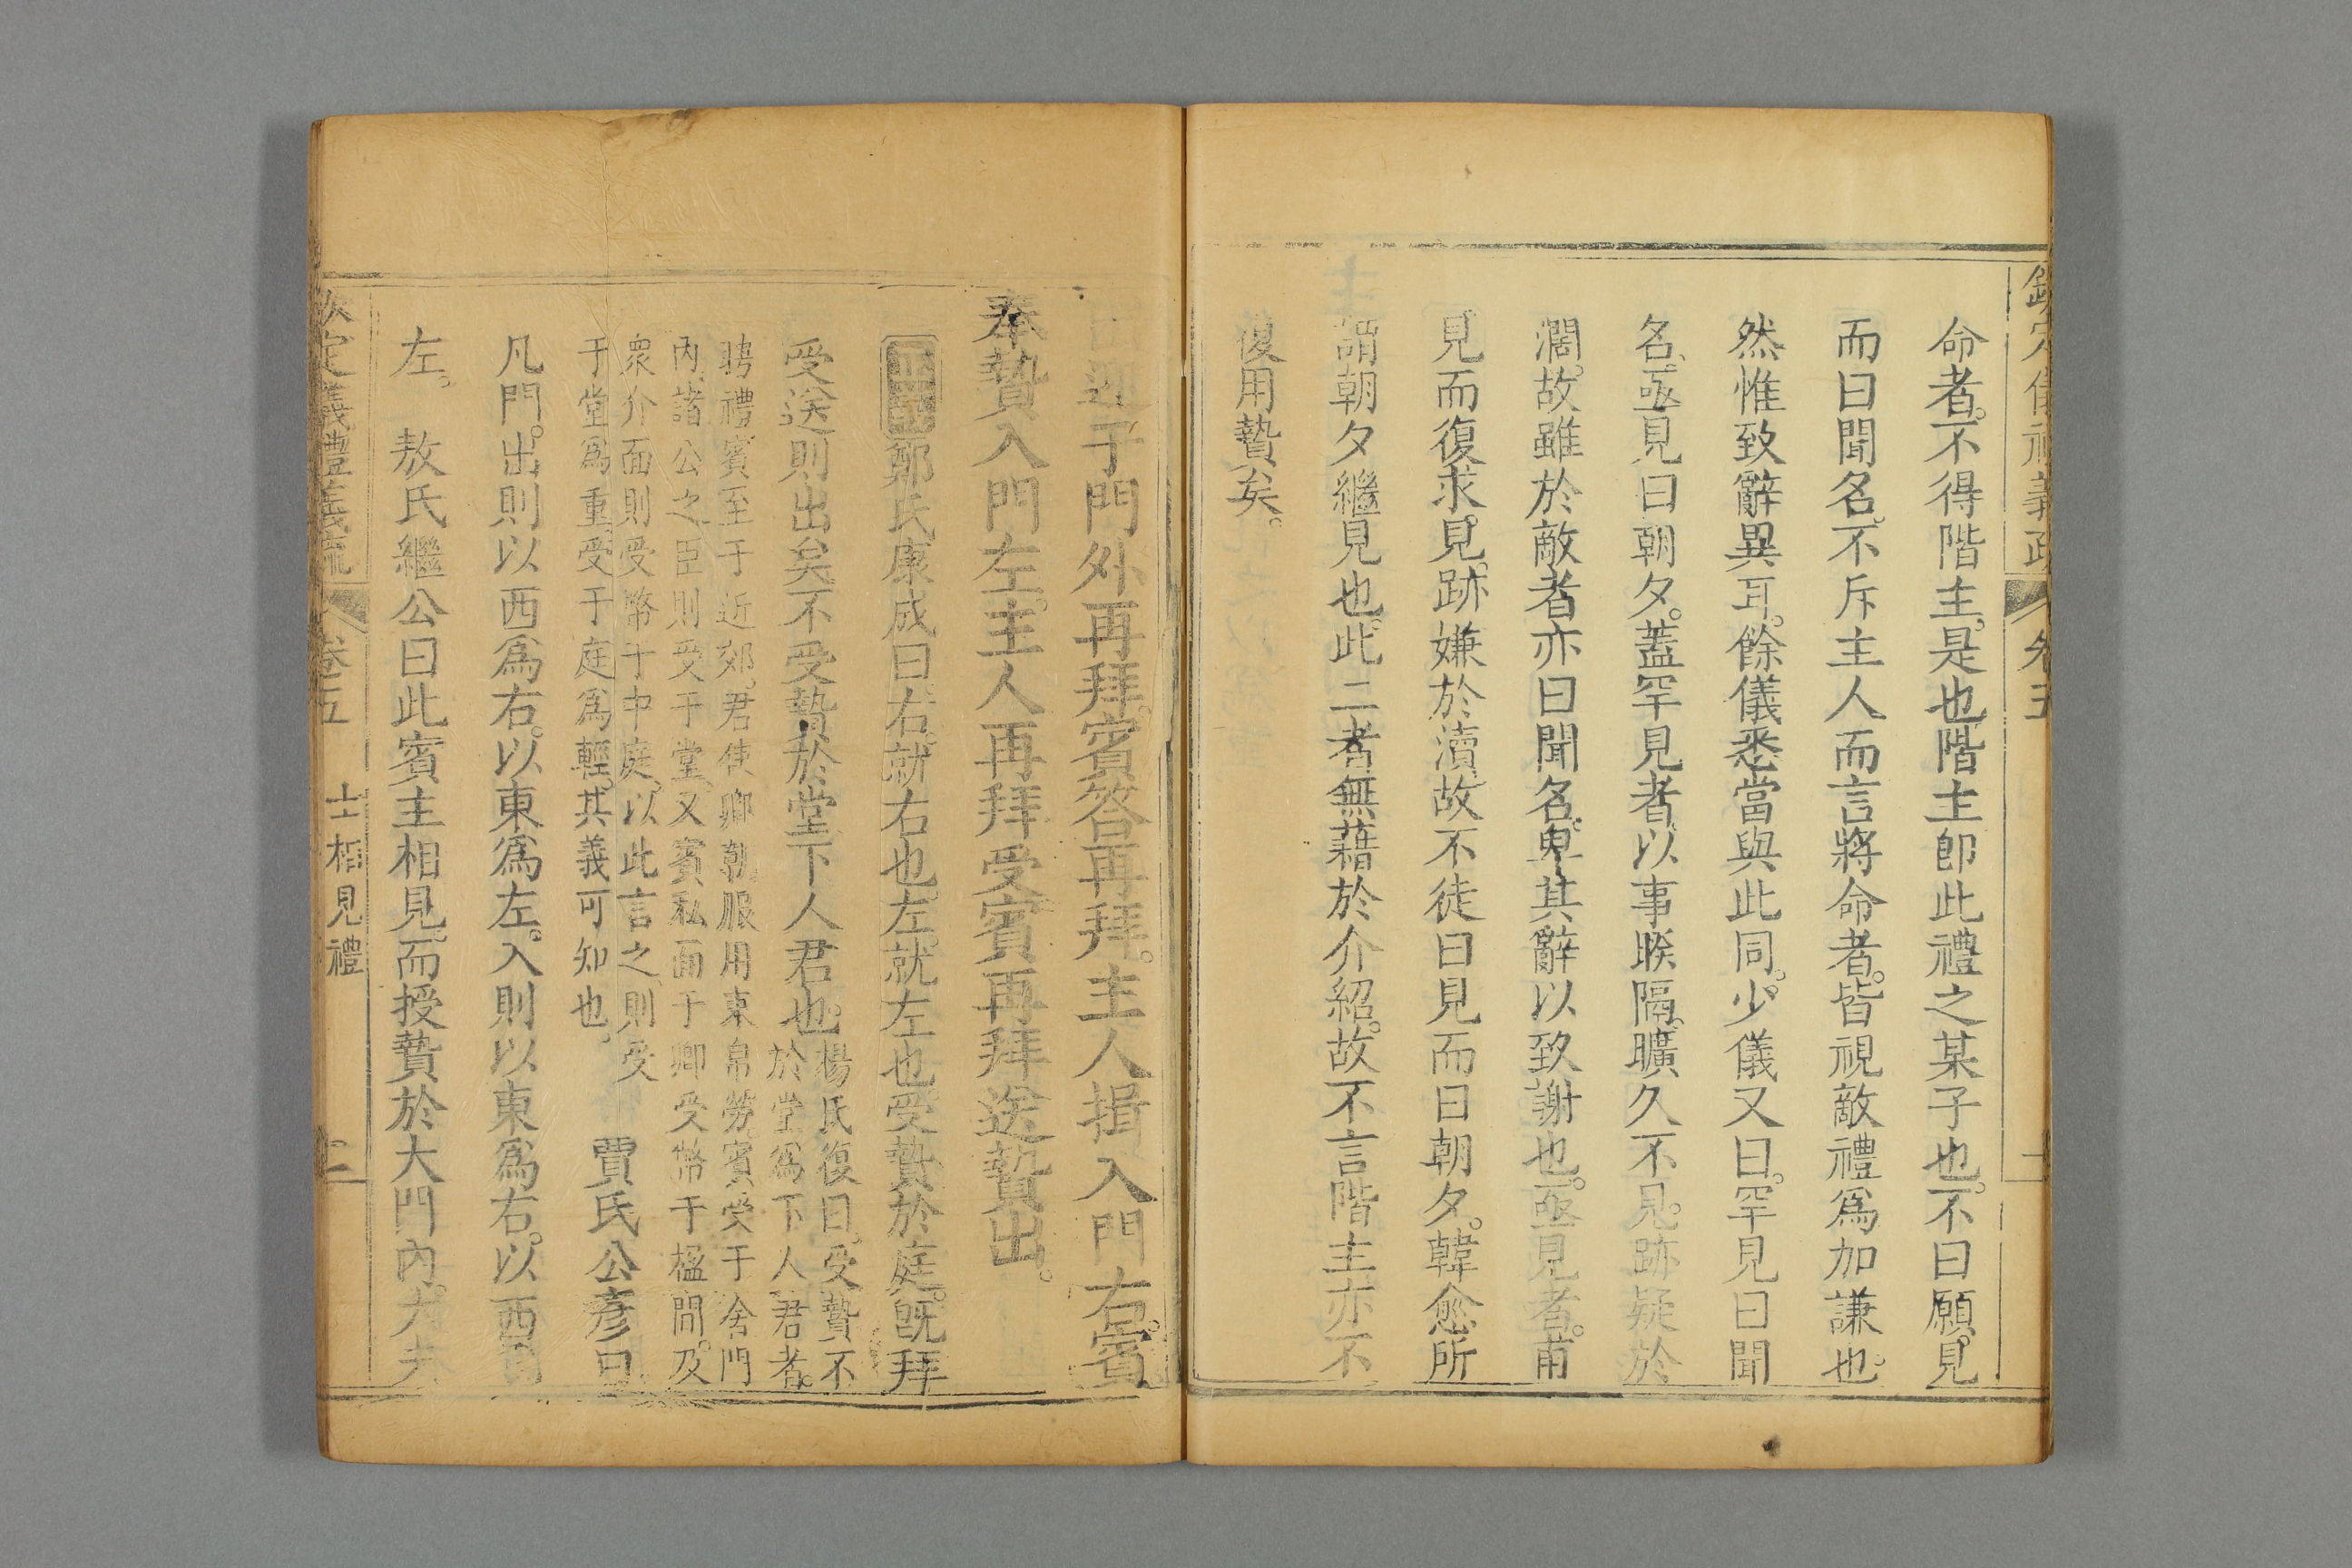 命者。不得階主。是也階主卽此禮之某子也。不曰願見
而曰聞名。不斥主人而言將命者。皆視敵禮爲加謙也。
然惟致辭異耳。餘儀悉當與此同。少儀又曰。罕見曰聞
名、亟見曰朝夕。蓋罕見者、以事暌隔。曠久不見。跡疑於
濶。故雖於敵者亦曰聞名。卑其辭以致謝也。亟見者。甫
見而復求見。跡嫌於瀆故不徒曰見而曰朝夕。韓愈所
謂朝夕繼見也。此二者無藉於介紹。故不言階主亦不
復用贄矣。
迎于門外再拜。賓答再拜。主人揖入門右。賓
奉贄入門左。主人再拜受賓再拜送贄出。
正義鄭氏康成曰右。就右也。左。就左也受贄於庭。旣拜
受送則出矣不受贄於堂下人君也。楊氏復曰。受贄不
於堂爲下人君者。
聘禮賓至于近郊。君使卿朝服用束帛勞。賓受于舍門
內。諸公之臣則受于堂。又賓私面于卿受幣于楹間。及
衆介面則受幣于中庭。以此言之、則受
于堂爲重。受于庭爲輕。其義可知也。
賈氏公彥曰
凡門。出則以西爲右。以東爲左。入則以東爲右。以西爲
左。 敖氏繼公曰此賓主相見。而授贄於大門內。大夫
欽定儀禮義疏 卷五 士相見禮 二